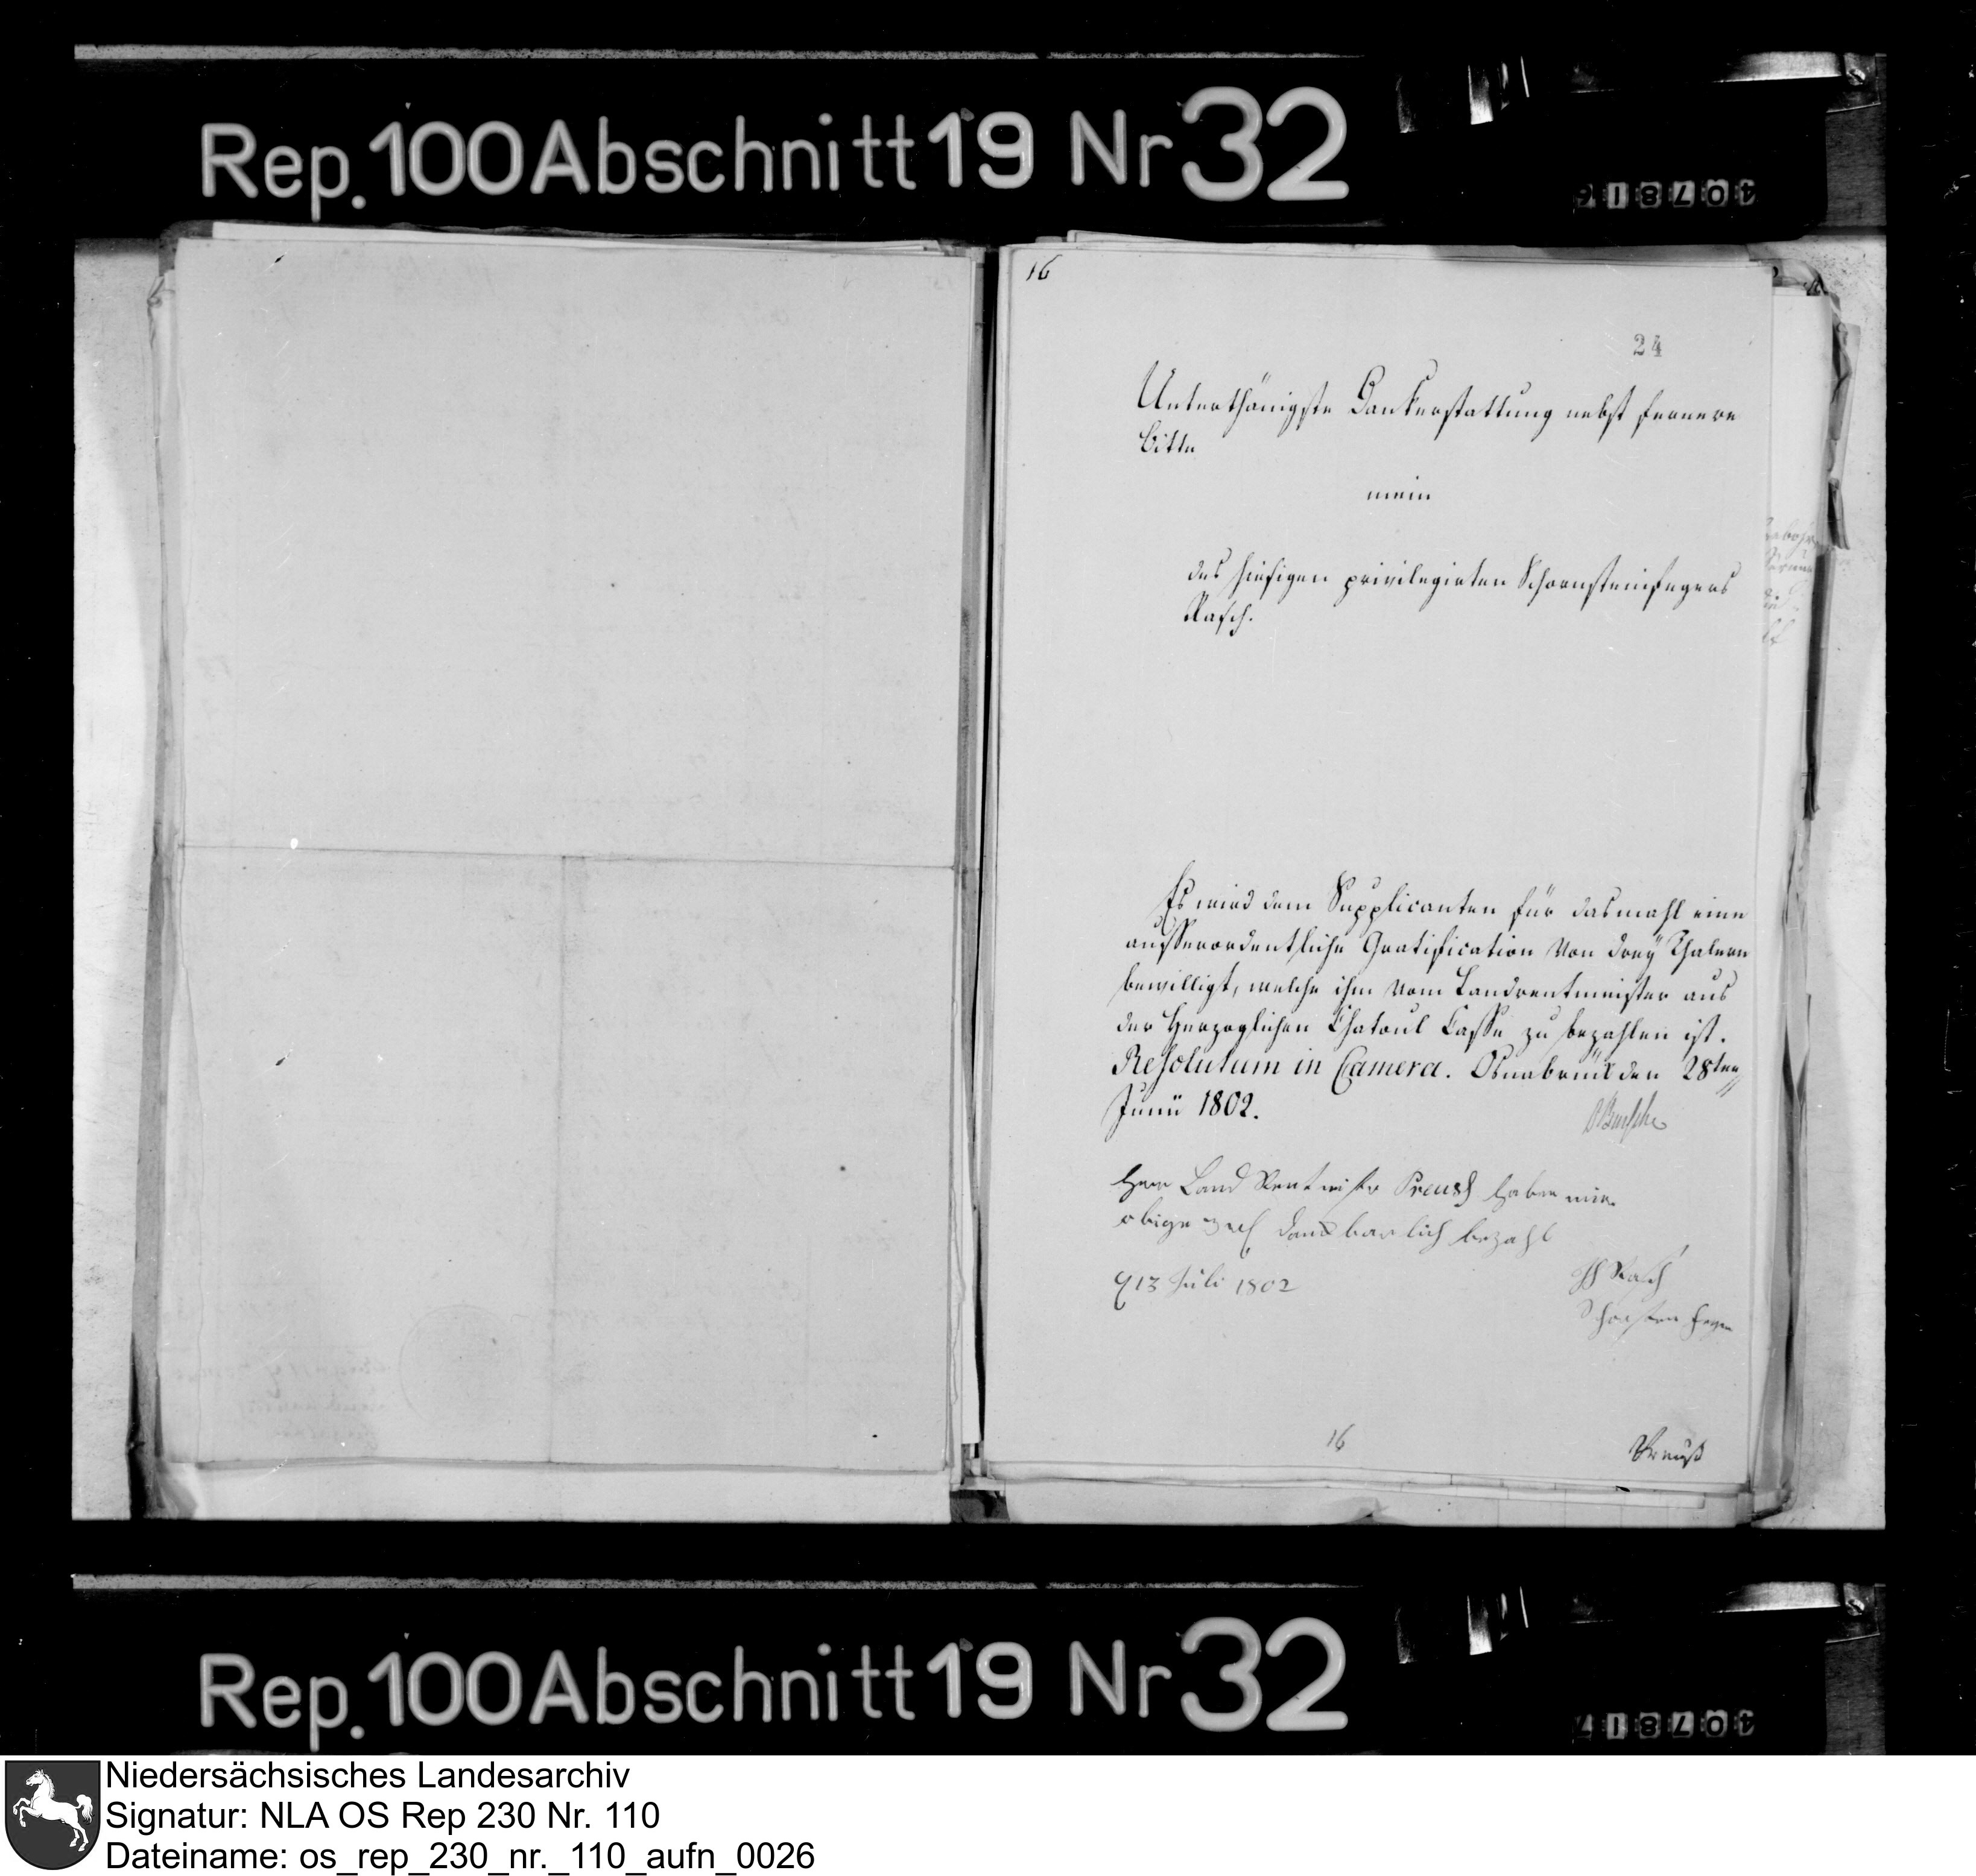 Rep. 100 Abschnitt 19 Nr 32
407816
16
24
Unterthänigste Dankerstattung nebst fernere
Bitte
mein
des hiesigen privilegirten Schornsteinfegers
Rasch.
Es wird dem Supplicanten für dasmahl eine
ausserordentliche Gratification von drey Thalern
bewilligt, welche ihm vom Landrentmeister aus
der Herzoglichen Chatoul Casse zu bezahlen ist.
Resolutum in Camera. Osnabrück den 28ten
Junii 1802.
Bussche
Herr Land Rentmister Preuss haben mir
obige 3 danckbarlich bezahl
13 Juli 1802
Rasch
Schorsten feger
16
Preuß
Rep. 100 Abschnitt 19 Nr 32
407817
Niedersächsisches Landesarchiv
Signatur: NLA OS Rep 230 Nr. 110
Dateiname: os_rep_230_nr._110_aufn_0026